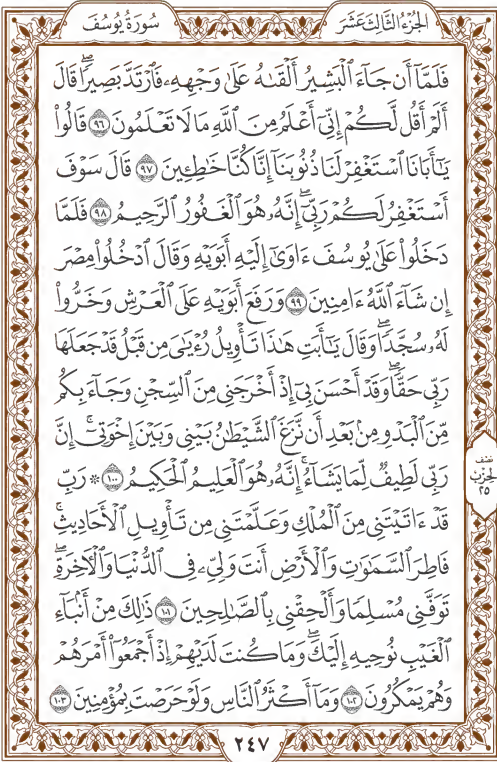 الجزء الثالث عشر
سورة يوسف
فَلَمَّآ أَن جَآءَ ٱلۡبَشِيرُ أَلۡقَىٰهُ عَلَىٰ وَجۡهِهِۦ فَٱرۡتَدَّ بَصِيرٗاۖ قَالَ
أَلَمۡ أَقُل لَّكُمۡ إِنِّيٓ أَعۡلَمُ مِنَ ٱللَّهِ مَا لَا تَعۡلَمُونَ ٩٦ قَالُواْ
يَٰٓأَبَانَا ٱسۡتَغۡفِرۡ لَنَا ذُنُوبَنَآ إِنَّا كُنَّا خَٰطِـِٔينَ ٩٧ قَالَ سَوۡفَ
أَسۡتَغۡفِرُ لَكُمۡ رَبِّيٓۖ إِنَّهُۥ هُوَ ٱلۡغَفُورُ ٱلرَّحِيمُ ٩٨ فَلَمَّا
دَخَلُواْ عَلَىٰ يُوسُفَ ءَاوَىٰٓ إِلَيۡهِ أَبَوَيۡهِ وَقَالَ ٱدۡخُلُواْ مِصۡرَ
إِن شَآءَ ٱللَّهُ ءَامِنِينَ ٩٩ وَرَفَعَ أَبَوَيۡهِ عَلَى ٱلۡعَرۡشِ وَخَرُّواْ
لَهُۥ سُجَّدٗاۖ وَقَالَ يَٰٓأَبَتِ هَٰذَا تَأۡوِيلُ رُءۡيَٰيَ مِن قَبۡلُ قَدۡ جَعَلَهَا
رَبِّي حَقّٗاۖ وَقَدۡ أَحۡسَنَ بِيٓ إِذۡ أَخۡرَجَنِي مِنَ ٱلسِّجۡنِ وَجَآءَ بِكُم
مِّنَ ٱلۡبَدۡوِ مِنۢ بَعۡدِ أَن نَّزَغَ ٱلشَّيۡطَٰنُ بَيۡنِي وَبَيۡنَ إِخۡوَتِيٓۚ إِنَّ
رَبِّي لَطِيفٞ لِّمَا يَشَآءُۚ إِنَّهُۥ هُوَ ٱلۡعَلِيمُ ٱلۡحَكِيمُ ١٠٠ ۞ رَبِّ
قَدۡ ءَاتَيۡتَنِي مِنَ ٱلۡمُلۡكِ وَعَلَّمۡتَنِي مِن تَأۡوِيلِ ٱلۡأَحَادِيثِۚ
فَاطِرَ ٱلسَّمَٰوَٰتِ وَٱلۡأَرۡضِ أَنتَ وَلِيِّۦ فِي ٱلدُّنۡيَا وَٱلۡأٓخِرَةِۖ
تَوَفَّنِي مُسۡلِمٗا وَأَلۡحِقۡنِي بِٱلصَّٰلِحِينَ ١٠١ ذَٰلِكَ مِنۡ أَنۢبَآءِ
ٱلۡغَيۡبِ نُوحِيهِ إِلَيۡكَۖ وَمَا كُنتَ لَدَيۡهِمۡ إِذۡ أَجۡمَعُوٓاْ أَمۡرَهُمۡ
وَهُمۡ يَمۡكُرُونَ ١٠٢ وَمَآ أَكۡثَرُ ٱلنَّاسِ وَلَوۡ حَرَصۡتَ بِمُؤۡمِنِينَ ١٠٣
نصف
الحزب
٢٥
٢٤٧